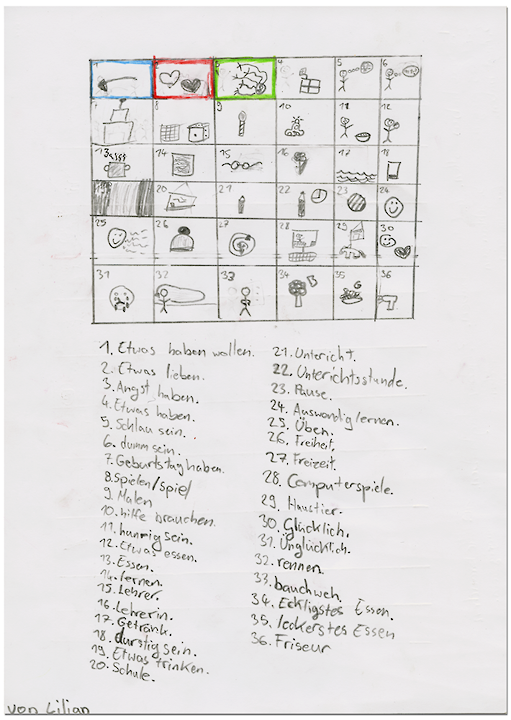 4 5 6
7 8 9 10 11 12
13 14 15 16 17 18
20 21 22 23 24
25 26 27 28 29 30
31 32 33 34 35 36
1. Etwas haben wollen.
2. Etwas lieben.
3. Angst haben.
4. Etwas haben.
5. Schlau sein.
6. dumm sein.
7. Geburtstag haben.
8. Spielen/Spiel
9. Malen
10. hilfe brauchen.
11. hunrig sein.
12. Etwas essen.
13. Essen.
14. lernen.
15. Lehrer.
16. Lehrerin.
17. Getränk.
18. durstig sein.
19. Etwas trinken.
20. Schule.
21. Unterricht.
22. Unterichtsstunde.
23. Pause.
24. Auswendig lernen.
25. Üben.
26. Freiheit.
27. Freizeit.
28. Computerspiele.
29. Haustier.
30. Glücklich.
31. Unglücklich.
32. rennen.
33. bauchweh.
34. Eckligstes Essen.
35. leckerstes Essen
36. Friseur
von Lilian